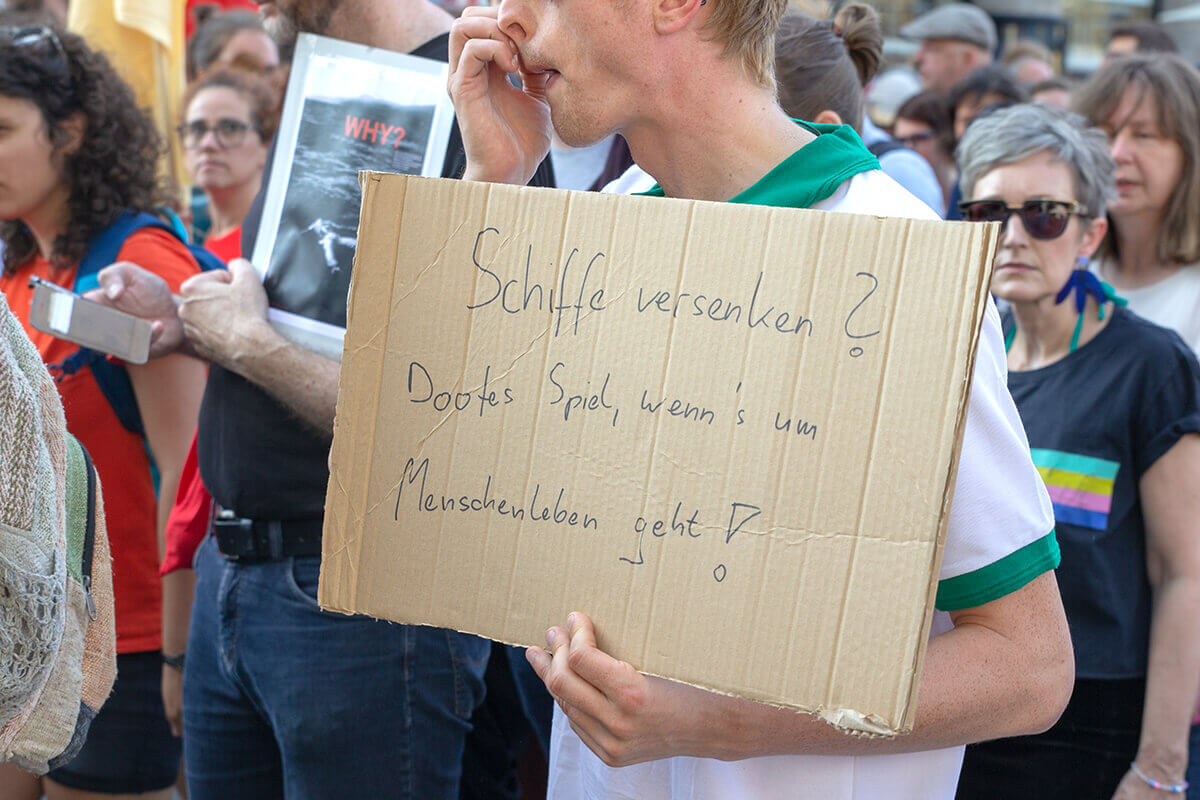 WHY?
Schiffe versenken?
Dootes Spiel, wenn's um
Menschenleben geht!